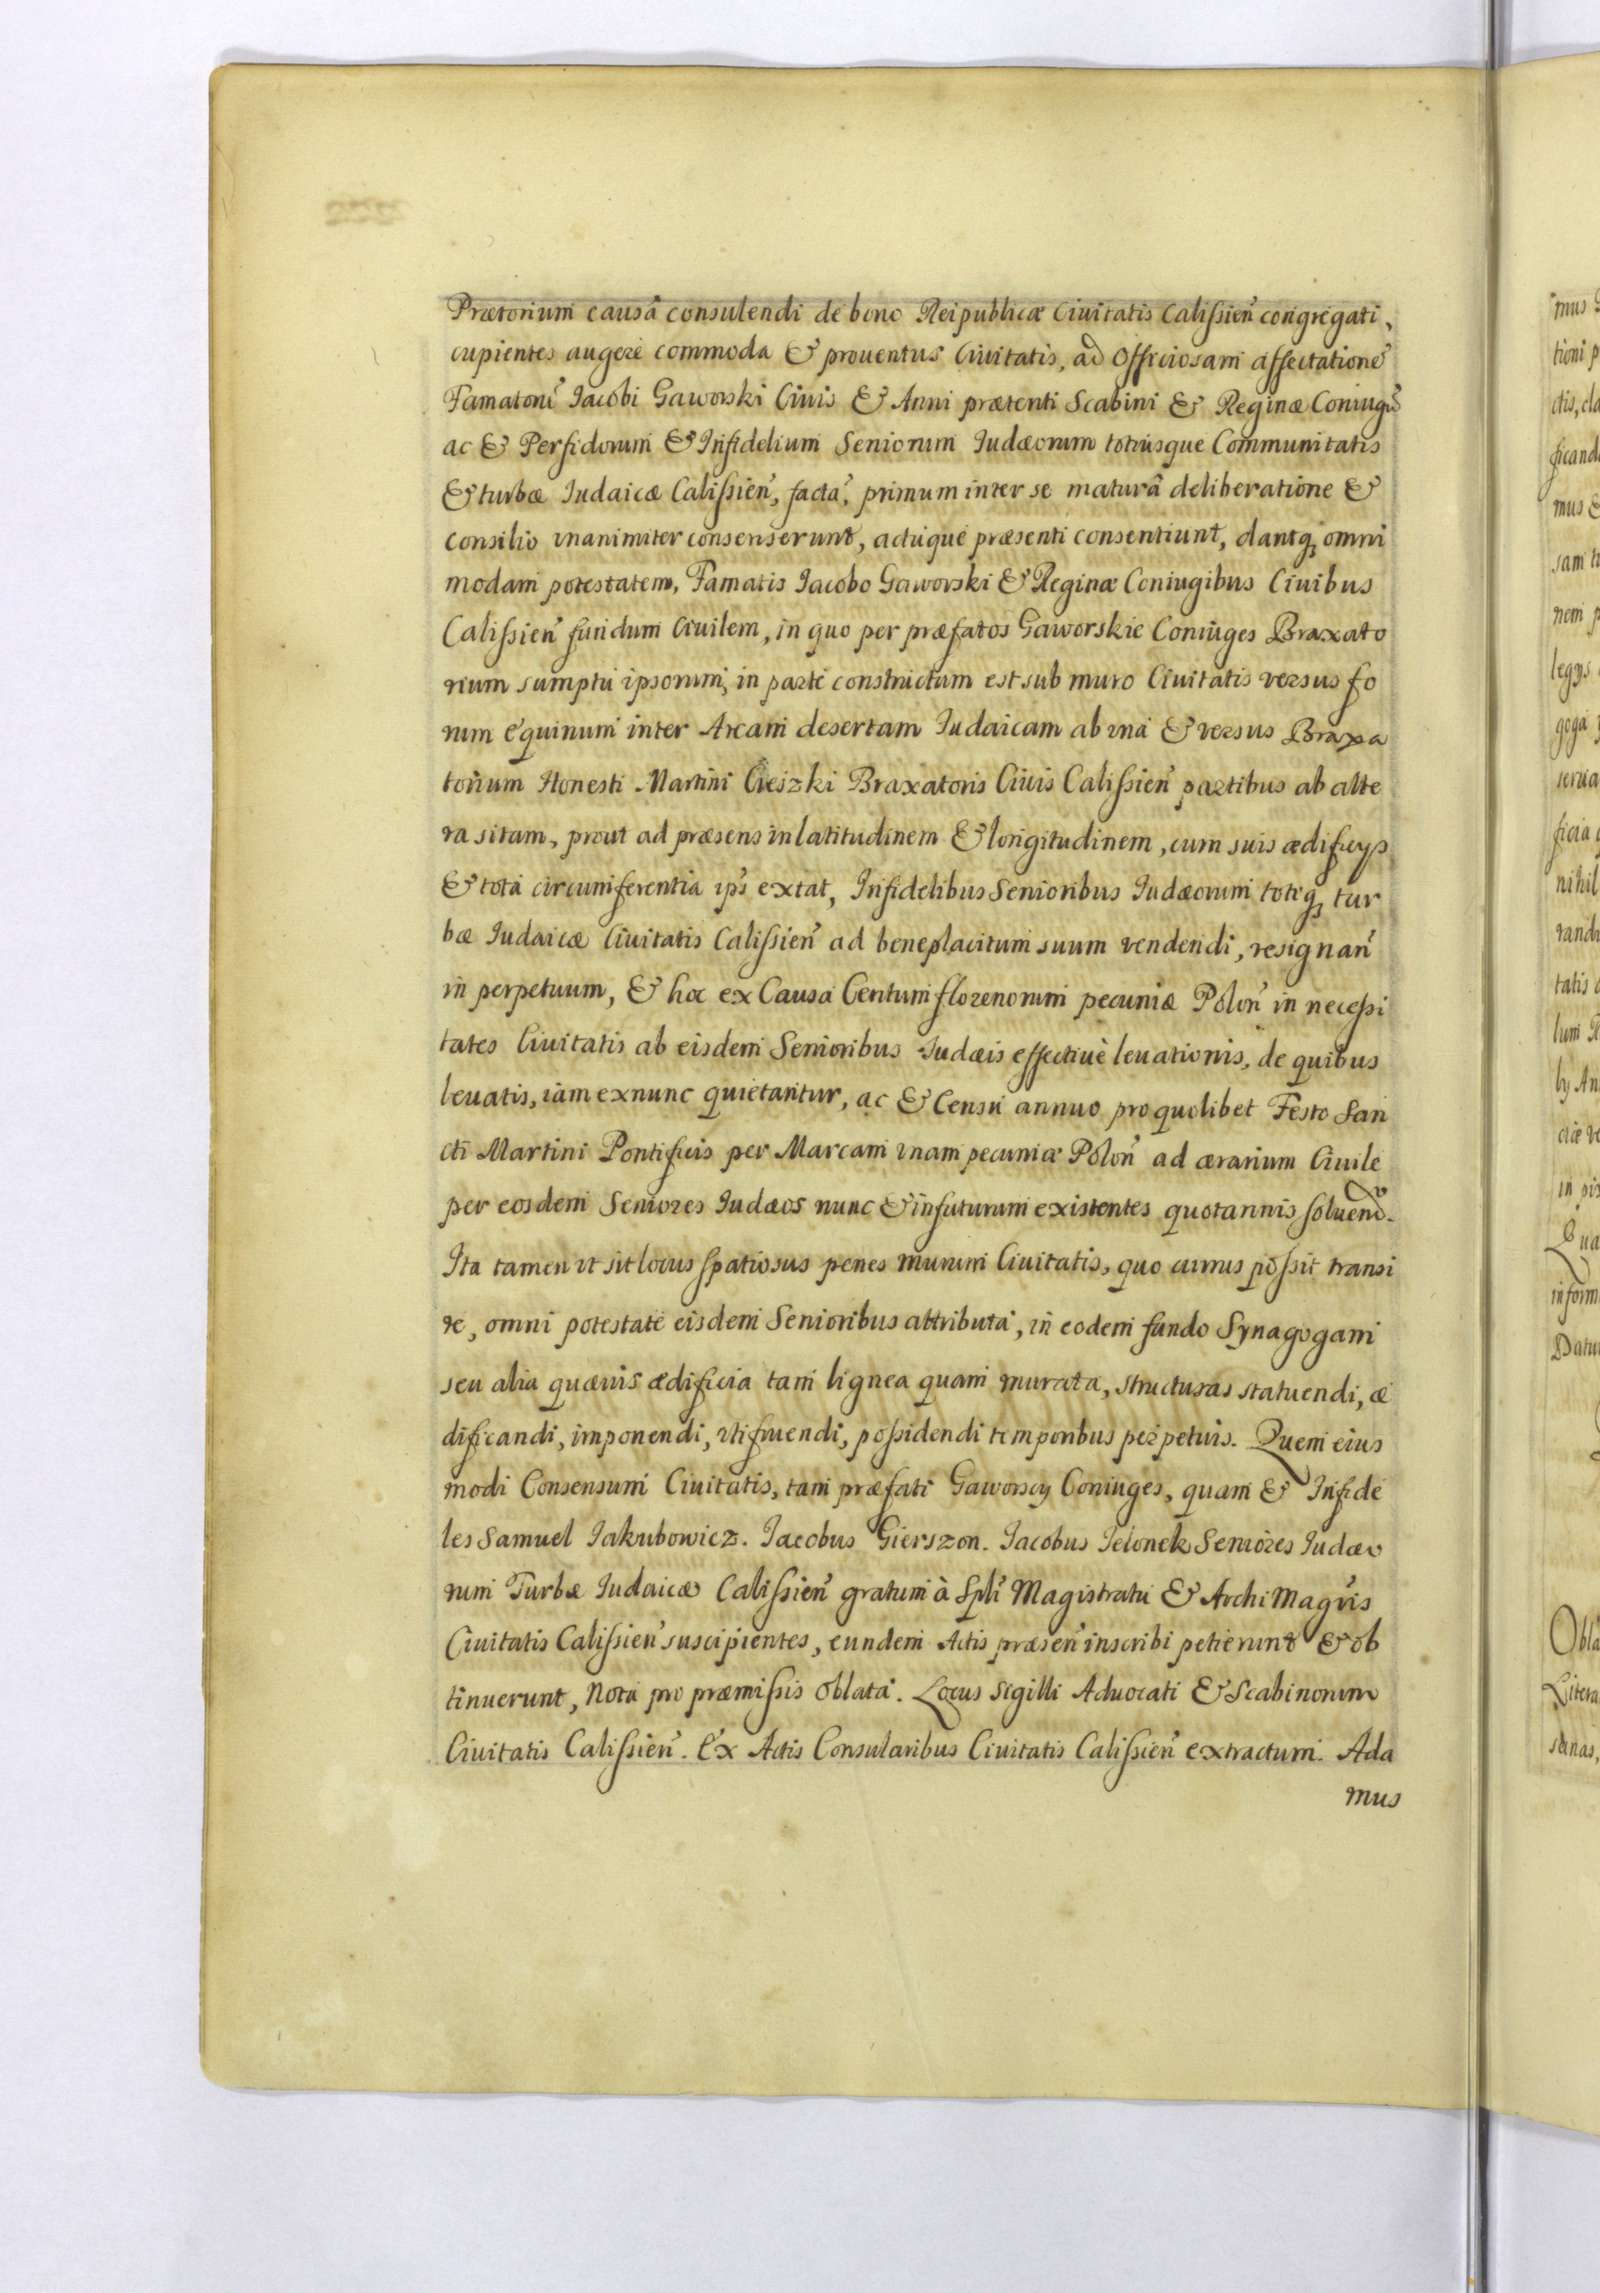 Prætorium causâ consulendi de bono Reipublicæ Ciuitatis Calissien̄ congregati,
cupientes augere commoda & prouentus Ciuitatis, ad Officiosam affectatione͂
Famatorū Iacobi Gaworski Ciuis & Anni præsenti Scabini & Reginæ Coniugū
ac & Perfidorum & Infidelium Seniorum Iudæorum totiusque Communitatis
& turbæ Iudaicæ Calissien̄, facta͂, primum inter se maturâ deliberatione &
consilio vnanimiter consenserunt, actuque præsenti consentiunt, dantq; omni
modam potestatem, Famatis Iacobo Gaworski & Reginæ Coniugibus Ciuibus
Calissien̄ fundum Ciuilem, in quo per præfatos Gaworskie Coniuges Braxato
rium sumptu ipsorum, in parte constructum est sub muro Ciuitatis versus fo
rum equinum inter Aream desertam Iudaicam ab vna & versus Braxa
torium Honesti Martini Cieszki Braxatoris Ciuis Calissien̄ partibus ab alte
ra sitam, prout ad præsens in latitudinem & longitudinem, cum suis ædificys
& tota circumferentia ip̄s extat, Infidelibus Senioribus Iudæorum totiq; tur
bæ Iudaicæ Ciuitatis Calissien̄ ad beneplacitum suum vendendi, resignan̄
in perpetuum, & hoc ex Causa Centum florenorum pecuniæ Polon̄ in necessi
tates Ciuitatis ab eisdem Senioribus Iudæis effectiuè leuationis, de quibus
leuatis, iam exnunc quietantur, ac & Censu annuo pro quolibet Festo San
cti Martini Pontificis per Marcam vnam pecuniæ Polon̄ ad ærarium Ciuile
per eosdem Seniores Iudæos nunc & in futurum existentes quotannis soluend̄.
Ita tamen vt sit locus spatiosus penes murum Ciuitatis, quo currus possit transi
re, omni potestate eisdem Senioribus attributa, in eodem fundo Synagogam
seu alia quæuis ædificia tam lignea quam murata, structuras statuendi, æ
dificandi, imponendi, vtifruendi, possidendi temporibus perpetuis. Quem eius
modi Consensum Ciuitatis, tam præfati Gaworscy Coniuges, quam & Infide
les Samuel Iakubowicz. Iacobus Gierszon. Iacobus Ielonek Seniores Iudæo
rum Turbæ Iudaicæ Calissien̄ gratum à Spl̄i Magistratu & ArchiMagr̄is
Ciuitatis Calissien̄ suscipientes, eundem Actis præsen̄ inscribi petierunt & ob
tinuerunt, Nota pro præmissis oblata. Locus Sigilli Aduocati & Scabinorum
Ciuitatis Calissien̄. Ex Actis Consularibus Ciuitatis Calissien̄ extractum. Ada
mus